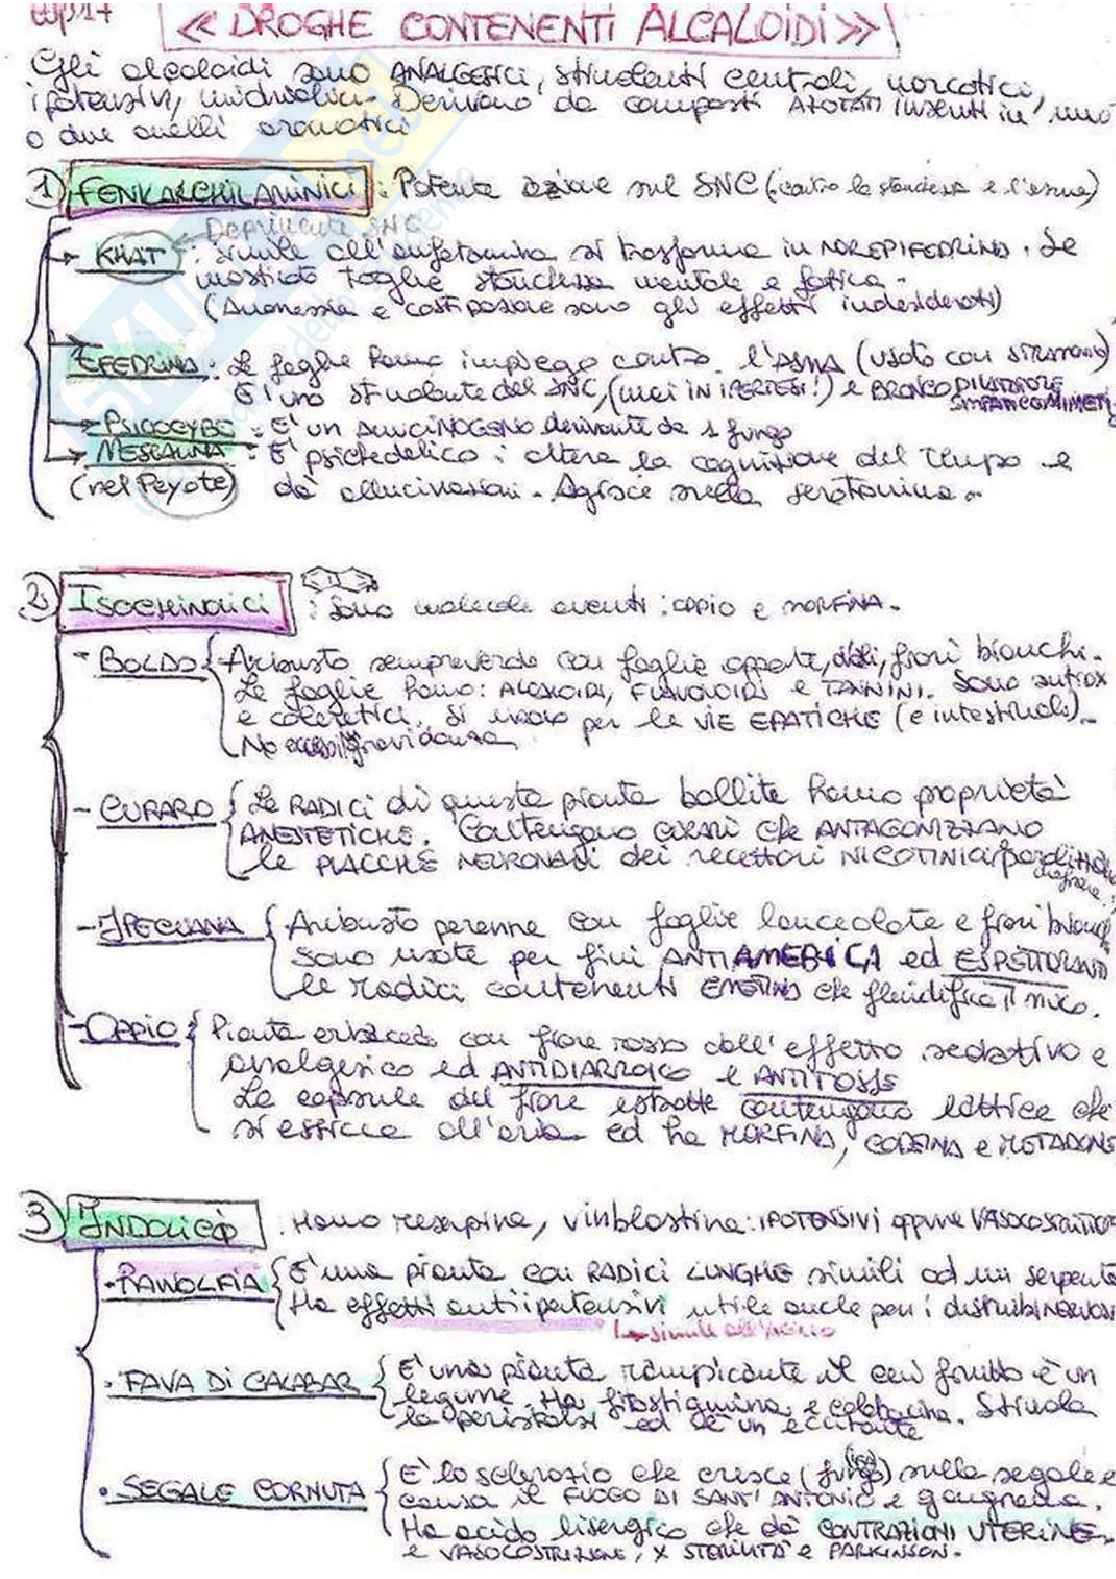 cap 17
<< DROGHE CONTENENTI ALCALOIDI >>
Gli alcaloidi sono ANALGESICI, stimolanti centrali, narcotici,
ipotensivi, midriatici. Derivano da composti AZOTATI inseriti in uno
o due anelli aromatici
1) FENILALCHILAMINICI : Potente azione sul SNC (contro la stanchezza e l'asma)
Deprimente SNC
KHAT : simile all'anfetamina si trasforma in NOREPIFEDRINA. Se
masticato toglie stanchezza mentale e fatica.
(Anoressia e costipazione sono gli effetti indesiderati)
EFEDRINA : Le foglie hanno impiego contro l'ASMA (usato con STRAMONIO)
E' uno stimolante del SNC, (mai IN IPERTESI!) e BRONCODILATATORE
SIMPATICOMIMETI
PSILOCYBE : E' un ALLUCINOGENO derivante da 1 fungo
MESCALINA : E' psichedelico : altera la cognizione del tempo e
(nel Peyote) dà allucinazioni. Agisce sulla serotonina.
2) ISOCHINOLICI : Sono molecole aventi : OPPIO e MORFINA.
- BOLDO { Arbusto sempreverde con foglie opposte, fiori bianchi.
Le foglie hanno: ALCALOIDI, FLAVONOIDI e TANNINI. Sono antiox
e coleretici. Si usano per le VIE EPATICHE (e intestinali).
No gravidanza
- CURARO { Le RADICI di questa pianta bollite hanno proprietà
ANESTETICHE. Contengono curari che ANTAGONIZZANO
le PLACCHE NEURONALI dei recettori NICOTINICI
- IPECUANA { Arbusto perenne con foglie lanceolate e fiori bianchi
Sono usate per fini ANTIAMEBICI ed ESPETTORANTI
le radici contenenti EMETINA che fluidifica il muco.
- OPPIO { Pianta erbacea con fiore rosso dall'effetto sedativo e
analgesico ed ANTIDIARROICO e ANTITOSSE
Le capsule del fiore estratte contengono lattice che
si essicca all'aria ed ha MORFINA, CODEINA e METADONE
3) INDOLICO : Hanno reserpina, vinblastina: IPOTENSIVI oppure VASOCOSTRITTOR
- RAWOLFIA { E' una pianta con RADICI LUNGHE simili ad un serpente
Ha effetti antiipertensivi utile anche per i disturbi NERVOSI
- FAVA DI CALABAR { E' una pianta rampicante il cui frutto è un
legume. Ha fisostigmina e calabarina. Stimola
la peristalsi ed è un eccitante
- SEGALE CORNUTA { E' lo sclerozio che cresce (fungo) sulla segale e
causa il FUOCO DI SANT'ANTONIO e gangrena.
Ha acido lisergico che dà CONTRAZIONI UTERINE
e VASOCOSTRIZIONE, x STERILITÀ e PARKINSON.